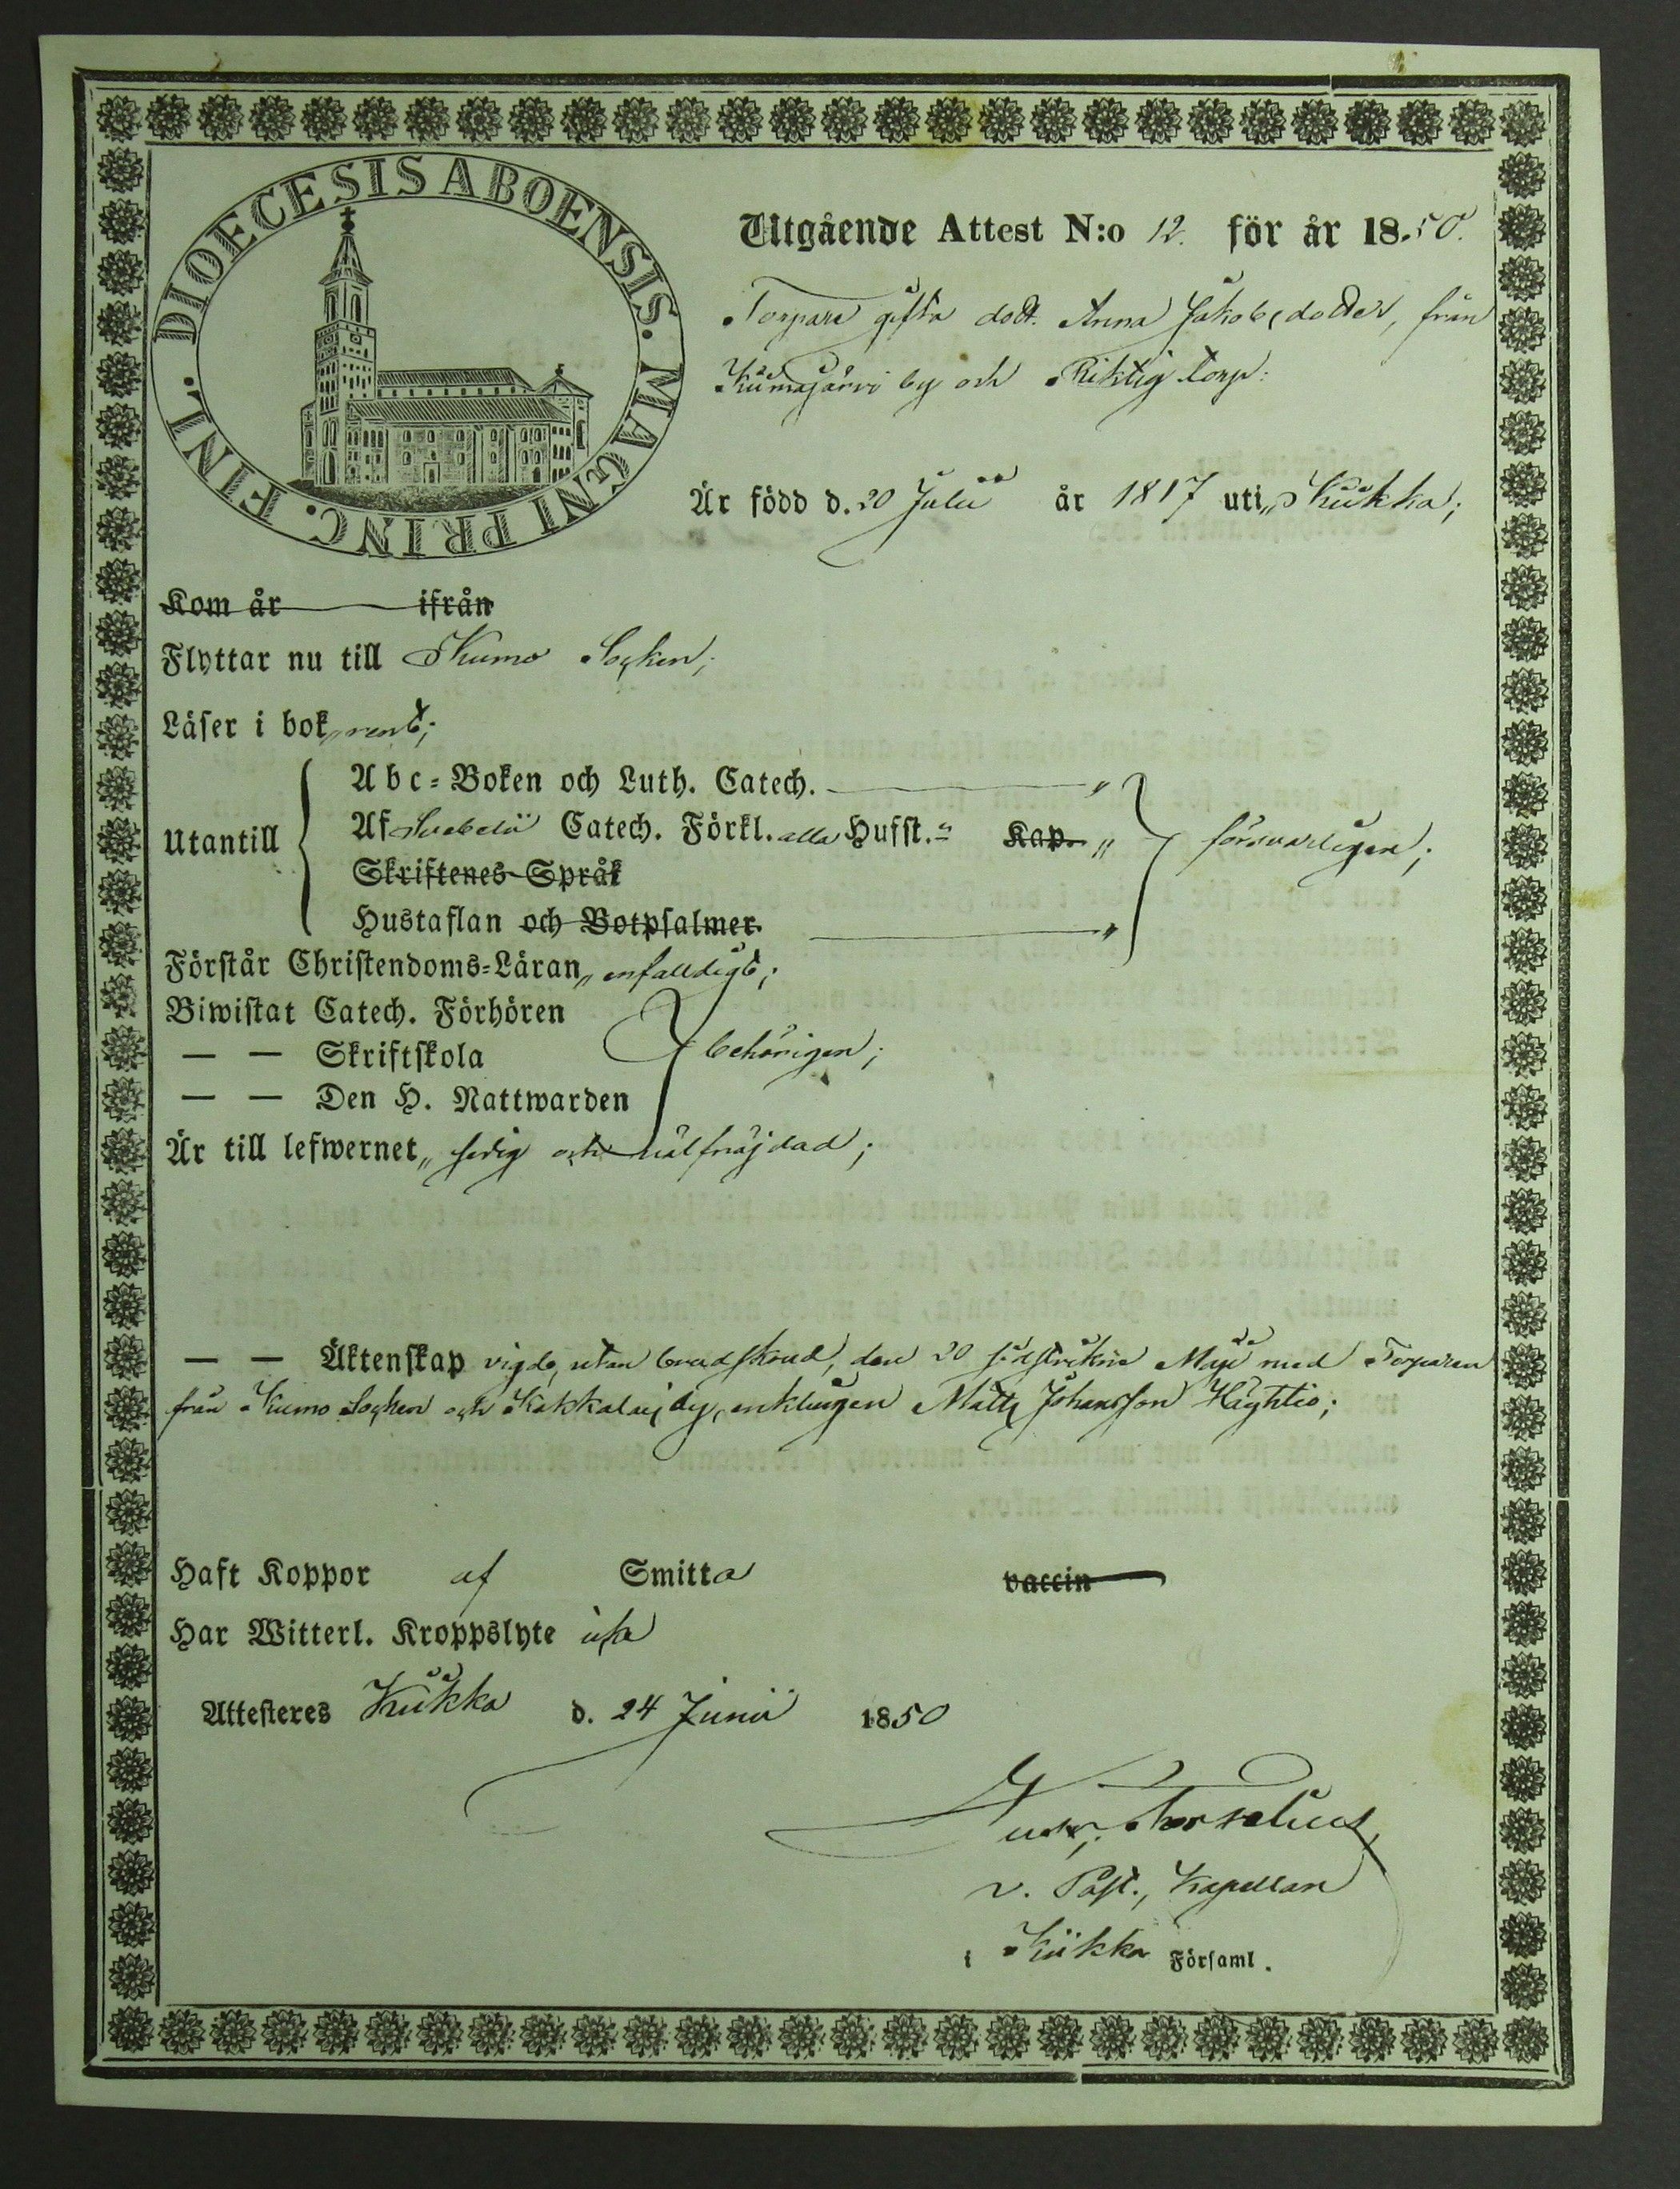 DIOECESIS ABOENSIS. MAGNI PRINC. FINL.
Utgående Attest N:o 12. för år 1850.
Torpare gifta dott. Anna Jakobsdotter, från
Kiimajärvi by och Riktig torp:
Är född d. 20 Julii år 1817 uti „ Kiikka;
Kom år ifrån
Flyttar nu till Kumo Socken;
Läser i bok „ rent;
Utantill
Abc-Boken och Luth. Catech. „
Af Svebelii Catech. Förkl. alla Hufst. Kap. „ försvarligen;
Skriftenes Språk
Hustaflan och Botpsalmer „
Förstår Christendoms-Läran „ enfalldigt;
Biwistat Catech. Förhören
— — Skriftskola behörigen;
— — Den H. Nattwarden
Är till lefwernet „ sedig och välfräjdad;
— — Äktenskap vigde, utan brudskrud, den 20 sidstvikne Maji med Torparen
från Kumo Socken och by, enklingen Matts Johansson
Haft Koppor af Smitta vaccin
Har Witterl. Kroppslyte icke
Attesteres Kiikka d. 24 Junii 1850
v. Past., Kapellan
i Kiikka Församl.